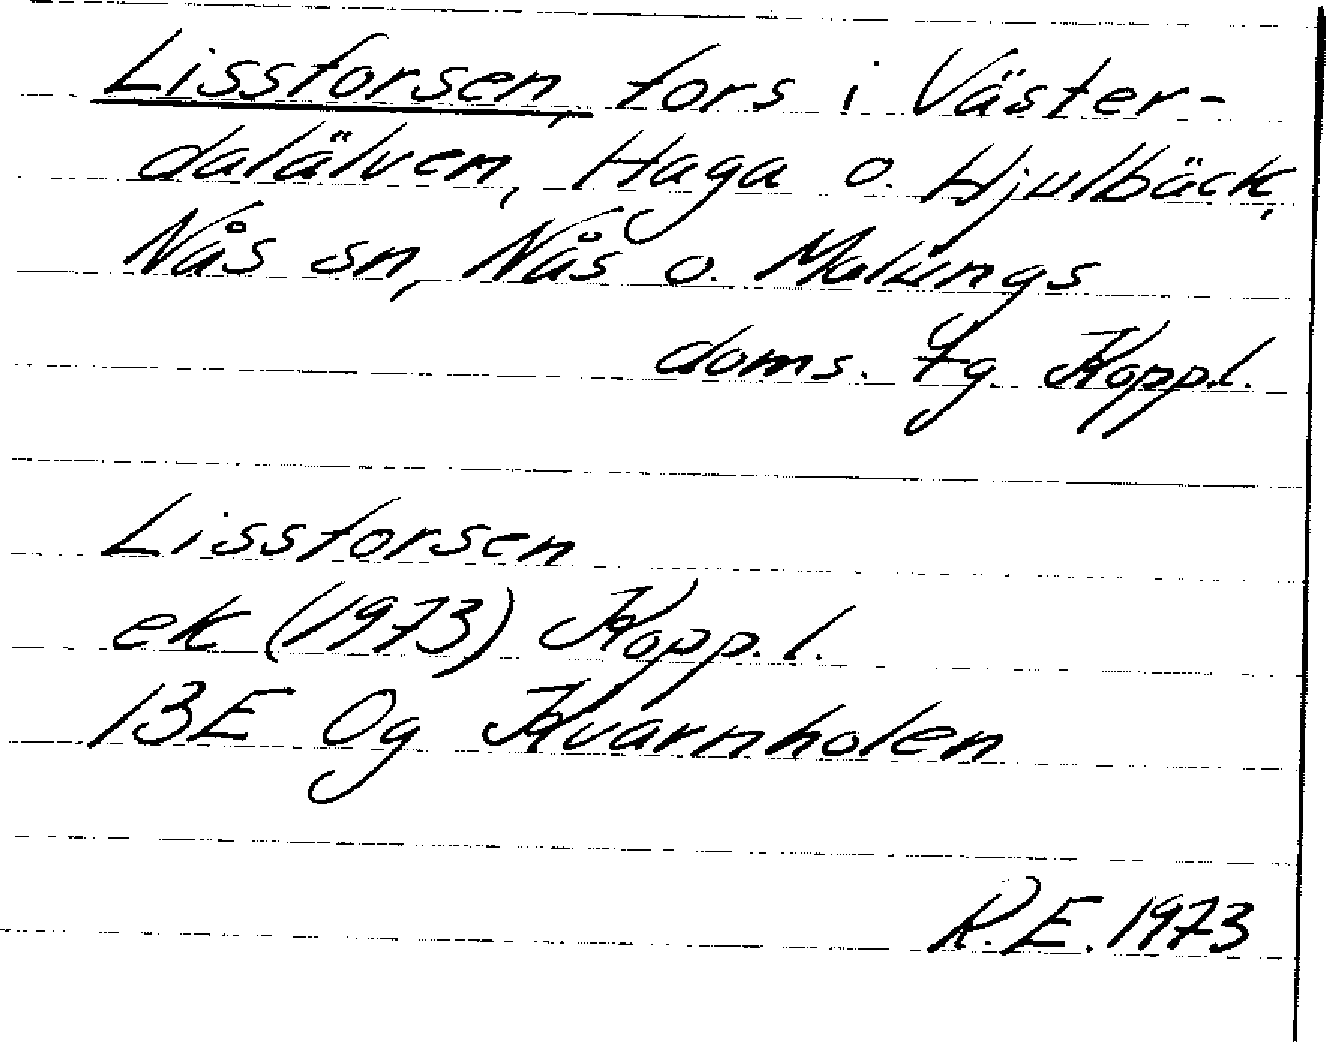 Lissforsen, fors i Väster-
dalälven, Haga o. Hjulbäck,
Nås sn, Nås o. Malungs
doms. fg Kopp.l.
Lissforsen
ek (1973) Kopp.l.
13E 0g Kvarnholen
R.E. 1973